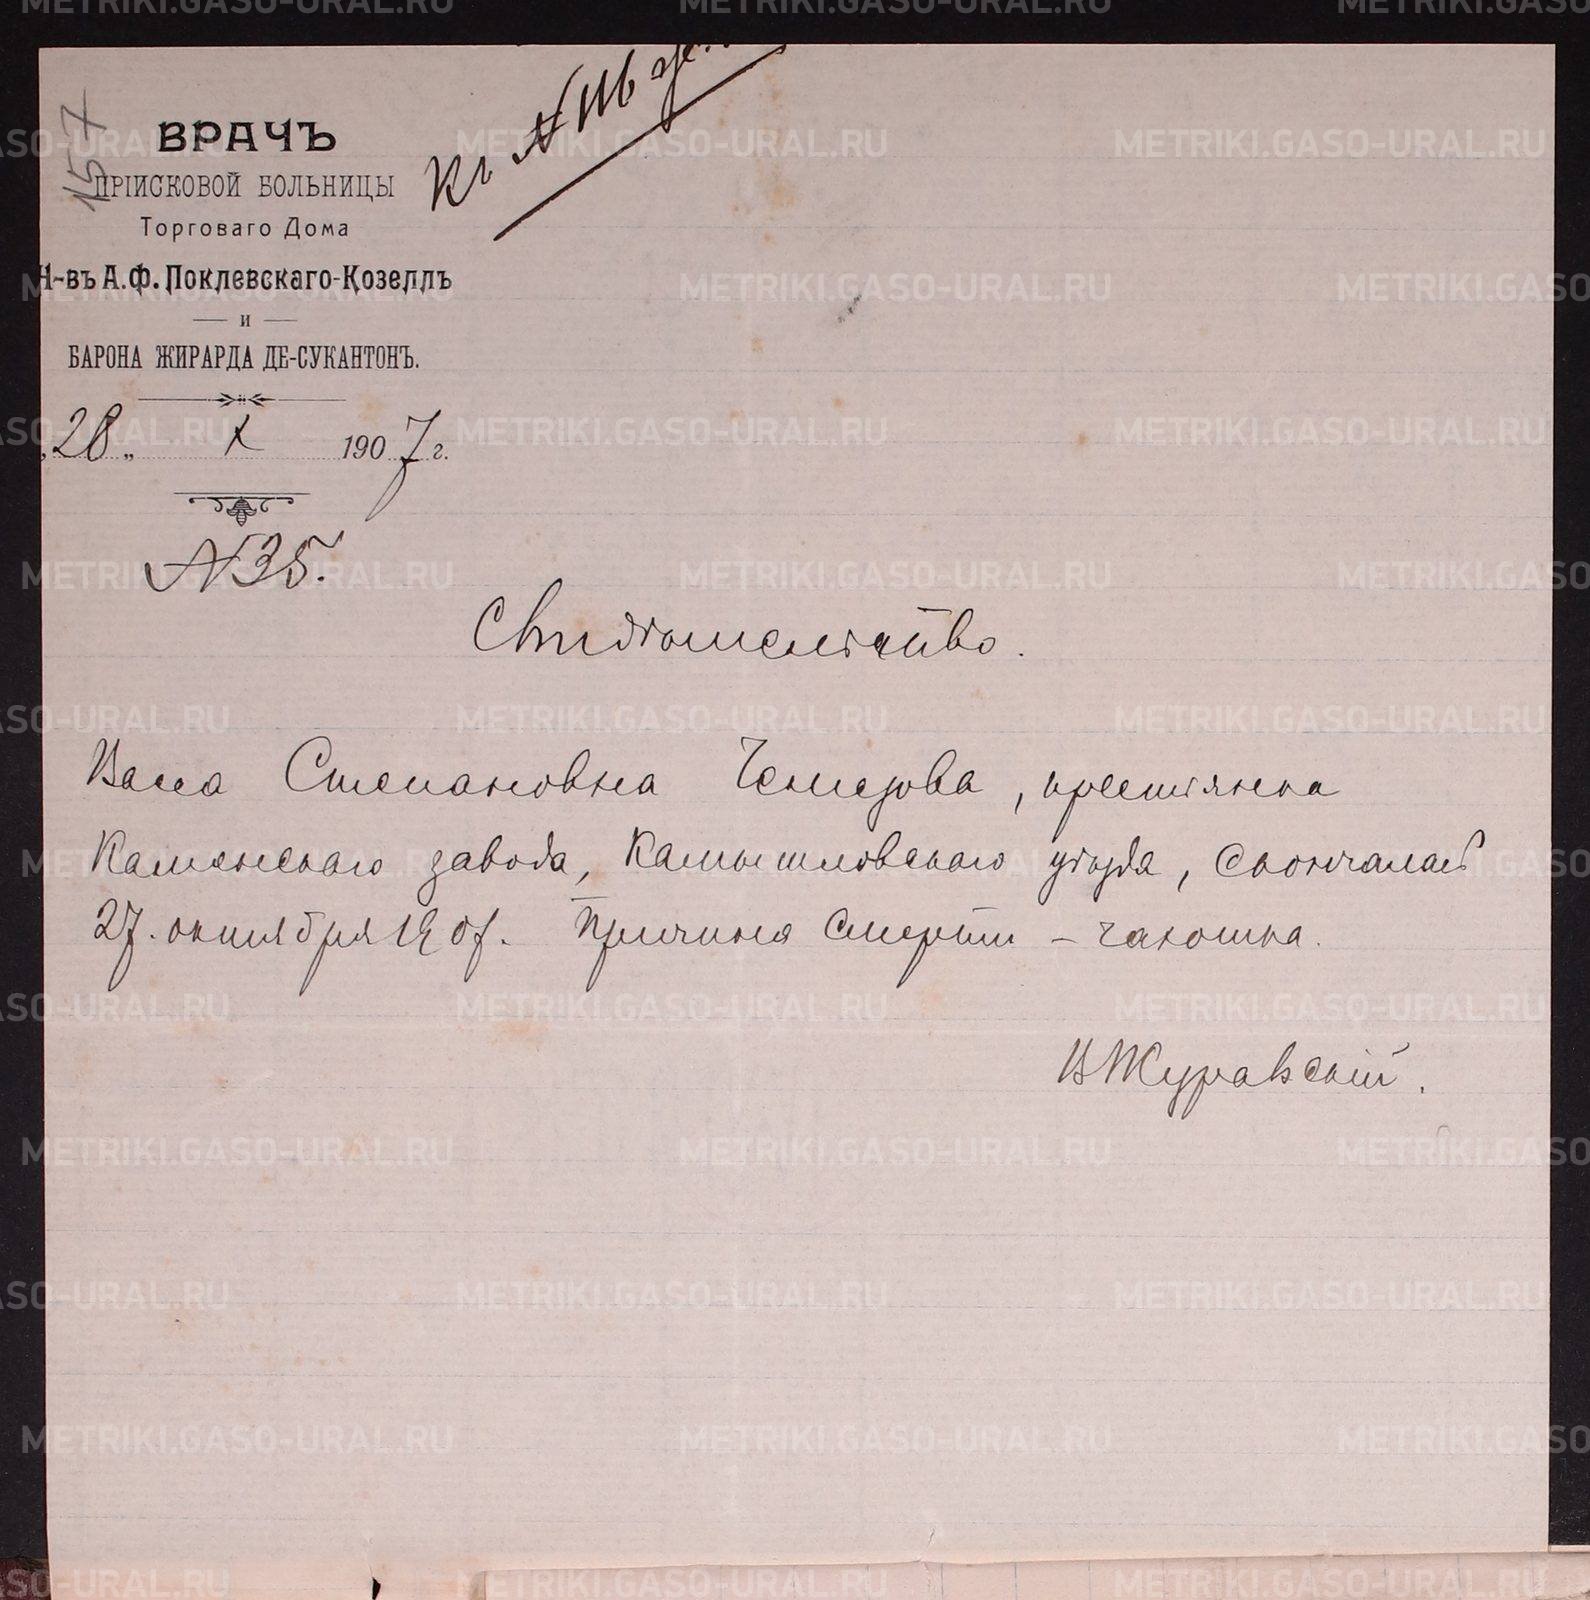 157
Къ № 116
ВРАЧЪ
ПРІИСКОВОЙ БОЛЬНИЦЫ
Торговаго Дома
Н-въ А.Ф. Поклевскаго-Козеллъ
и
БАРОНА ЖИРАРДА ДЕ-СУКАНТОНЪ.
„28„ X 1907 г.
№ 35.
Свидѣтельство.
Васса Степановна Чемезова, крестьянка
Каменскаго завода, Камышловскаго уѣзда, скончалась
27. октября 1907. Причина смерти – чахотка.
В Журавскій.
METRIKI.GASO-URAL.RU